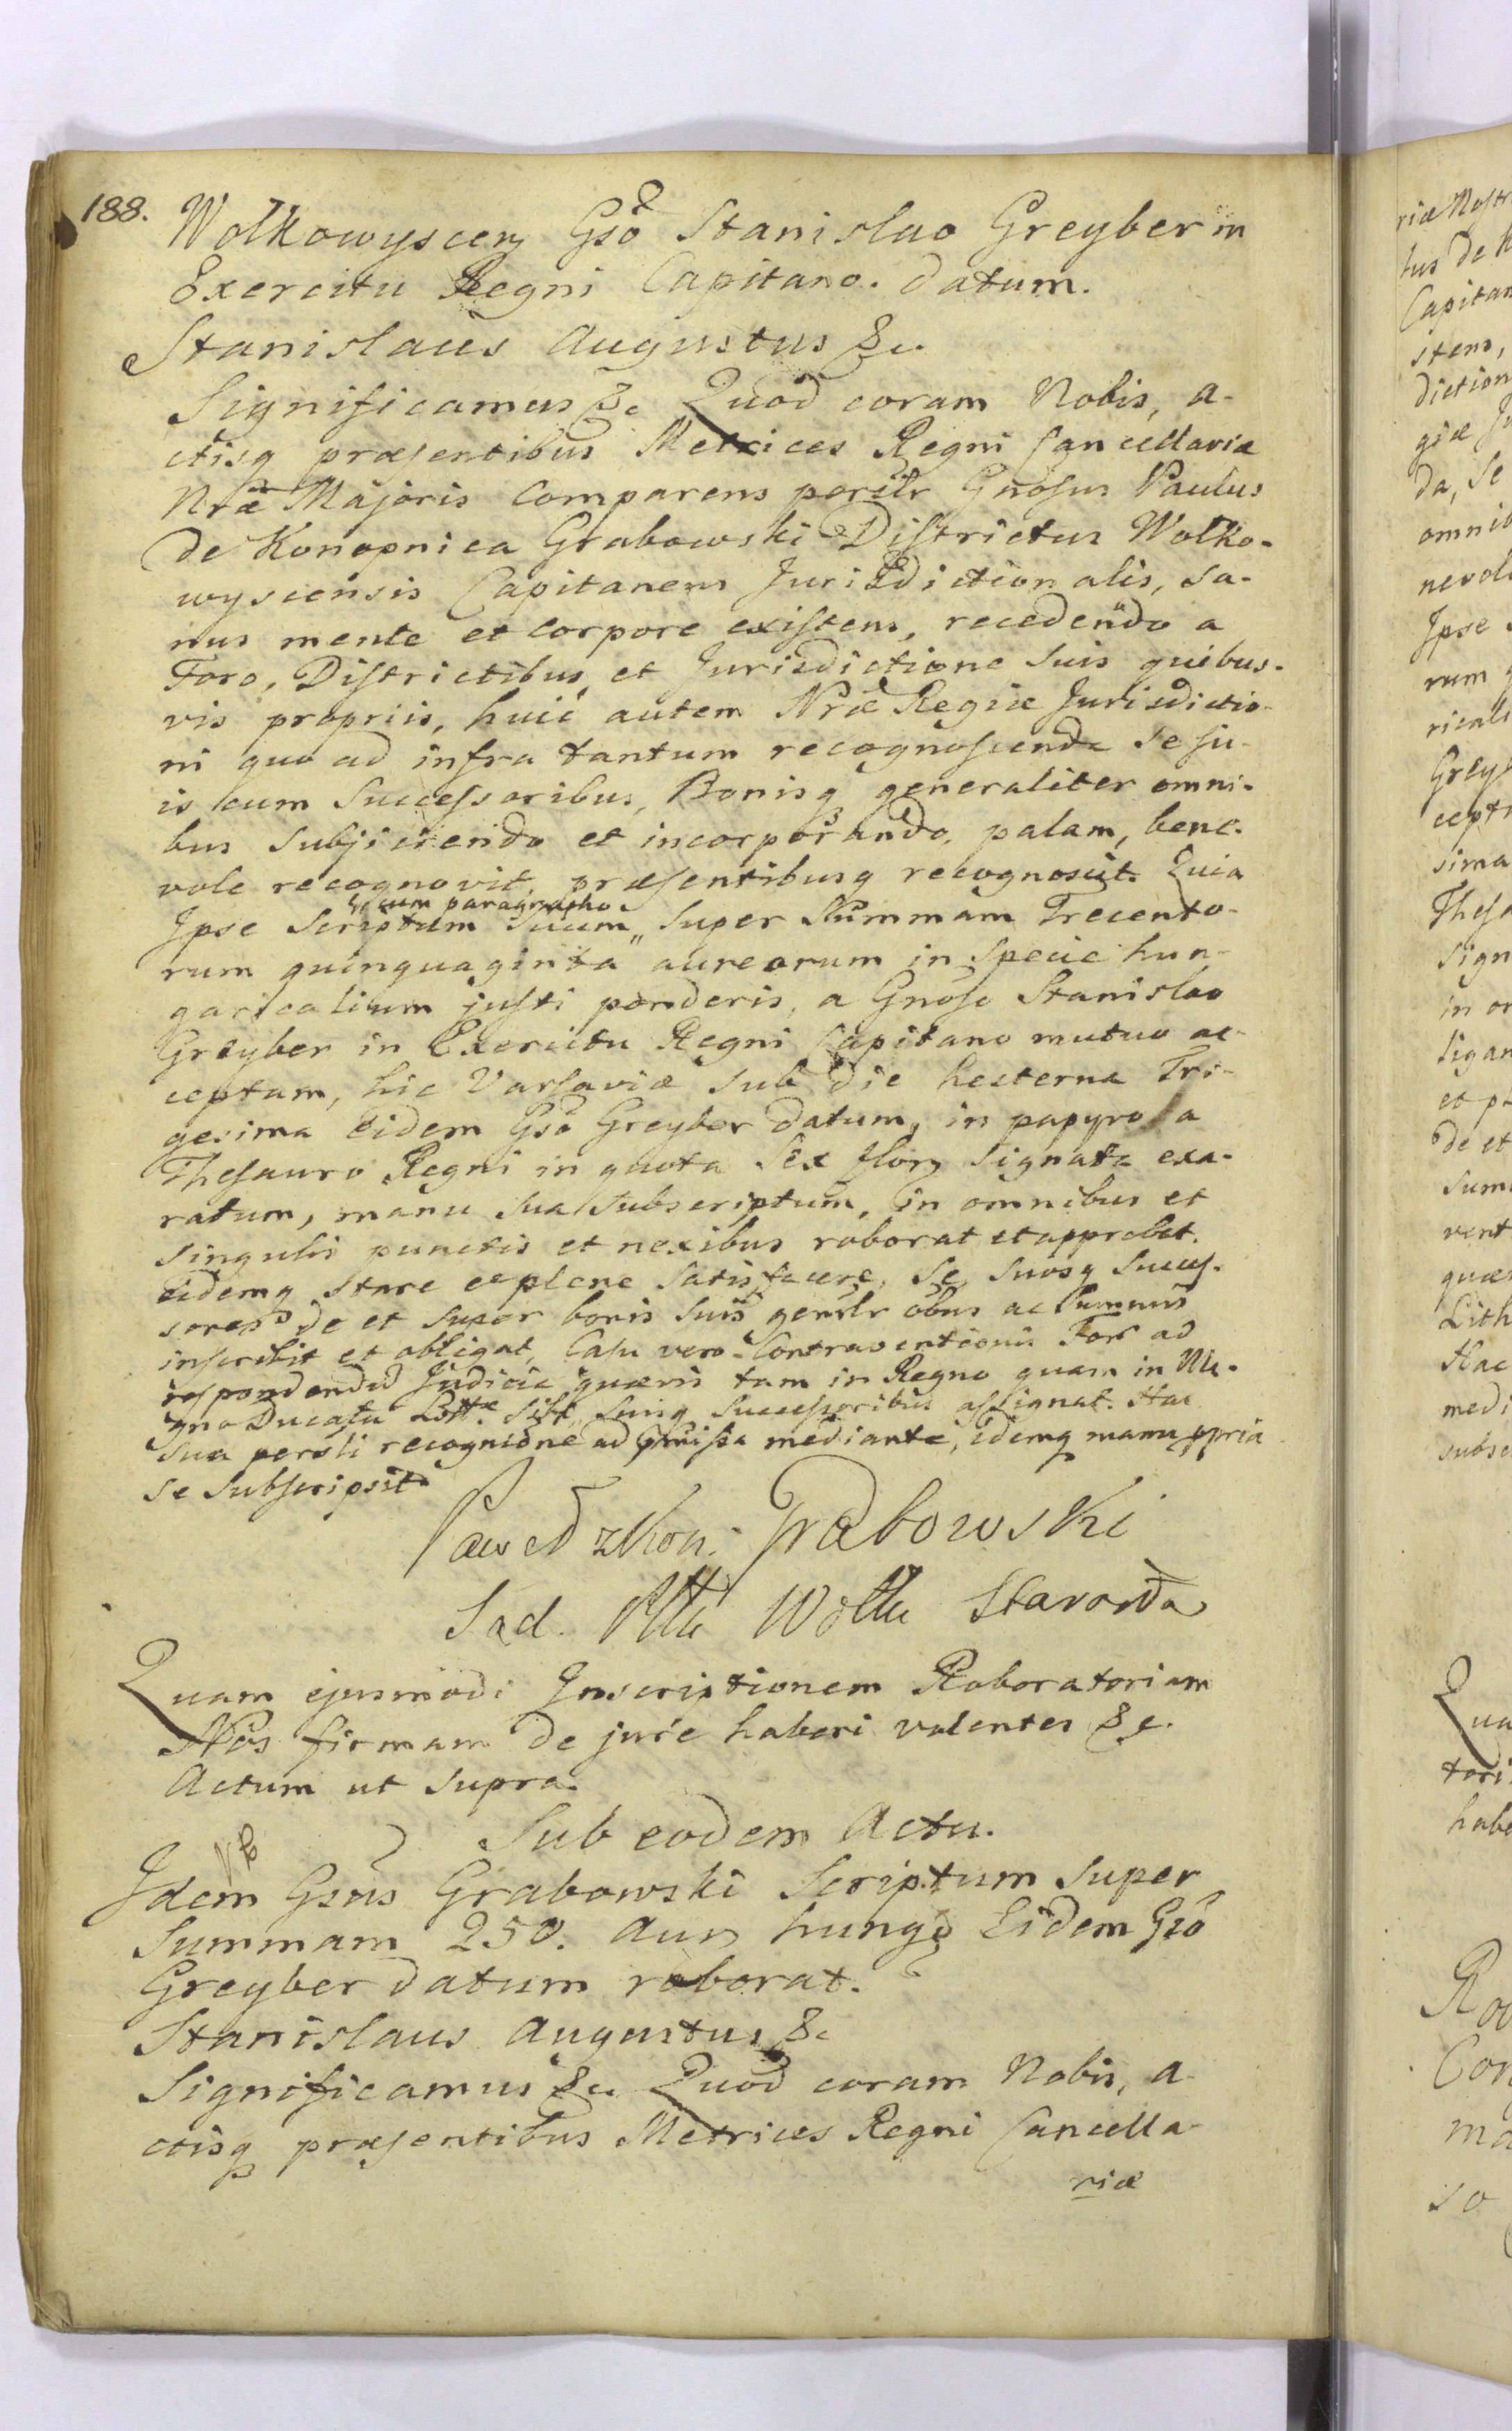 188.
Wolkowyscen Gso Stanislao Greyber in
Exercitu Regni Capitano. Datum.
Stanislaus Augustus &c.
Significamus &c. Quod coram Nobis, a-
ctisq præsentibus Metrices Regni Cancellariæ
Nræ Majoris Comparens personlr Gnosus Paulus
de Konopnica Grabowski Districtus Wolko-
wyscensis Capitaneus Jurisdictionalis, sa-
nus mente et corpore existens, recedendo a
Foro, Districtibus et Jurisdictione suis quibus-
vis propriis, huic autem Nræ Regiæ Jurisdictio-
ni quo ad infra tantum recognoscenda se su-
is cum Successoribus, Bonisq generaliter omni-
bus Subjiciendo et incorporando, palam, bene-
vole recognovit, præsentibusq recognoscit. Quia
cum paragrapho
Ipse Scriptum suum super Summam Trecento-
rum quinquaginta aureorum in Specie hun-
garicalium justi ponderis, a Gnoso Stanislao
Greyber in Exercitu Regni Capitano mutuo ac-
ceptam, hic Varsaviæ sub die hesterna Tri-
gesima Eidem Gso Greyber datum, in papyro a
Thesauro Regni in quota Sex flor Signata exa-
ratum, manu sua Subscriptum, in omnibus et
singulis punctis et nexibus roborat et approbat.
Eidemq stare et plene Satisfacere, Se, Suosq Succes-
sores de et super bonis Suis genrlr obus ac Summis
inscribit et obligat, Casu vero Contraventionis Foru ad
respondendu Judicia quævis tam in Regno quam in Ma-
gno Ducatu Litt. Sibi, Suisq Successoribus assignat. Hac
Sua persli recognione ad præmissa mediante, idemq manu ppria
se Subscripsit
Paweł z Kon. Grabowski
Sąd. Pttu Wołk Starosta
Quam ejusmodi Inscriptionem Roboratoriam
Nos firmam de jure haberi volentes &c.
Actum ut supra.
Sub eodem Actu.
Idem Gsus Grabowski Scriptum super
Summam 250. Aur hung Eidem Gso
Greyber datum roborat.
Stanislaus Augustus &c
Significamus &c. Quod coram Nobis, a-
ctisq præsentibus Metrices Regni Cancella-
riæ